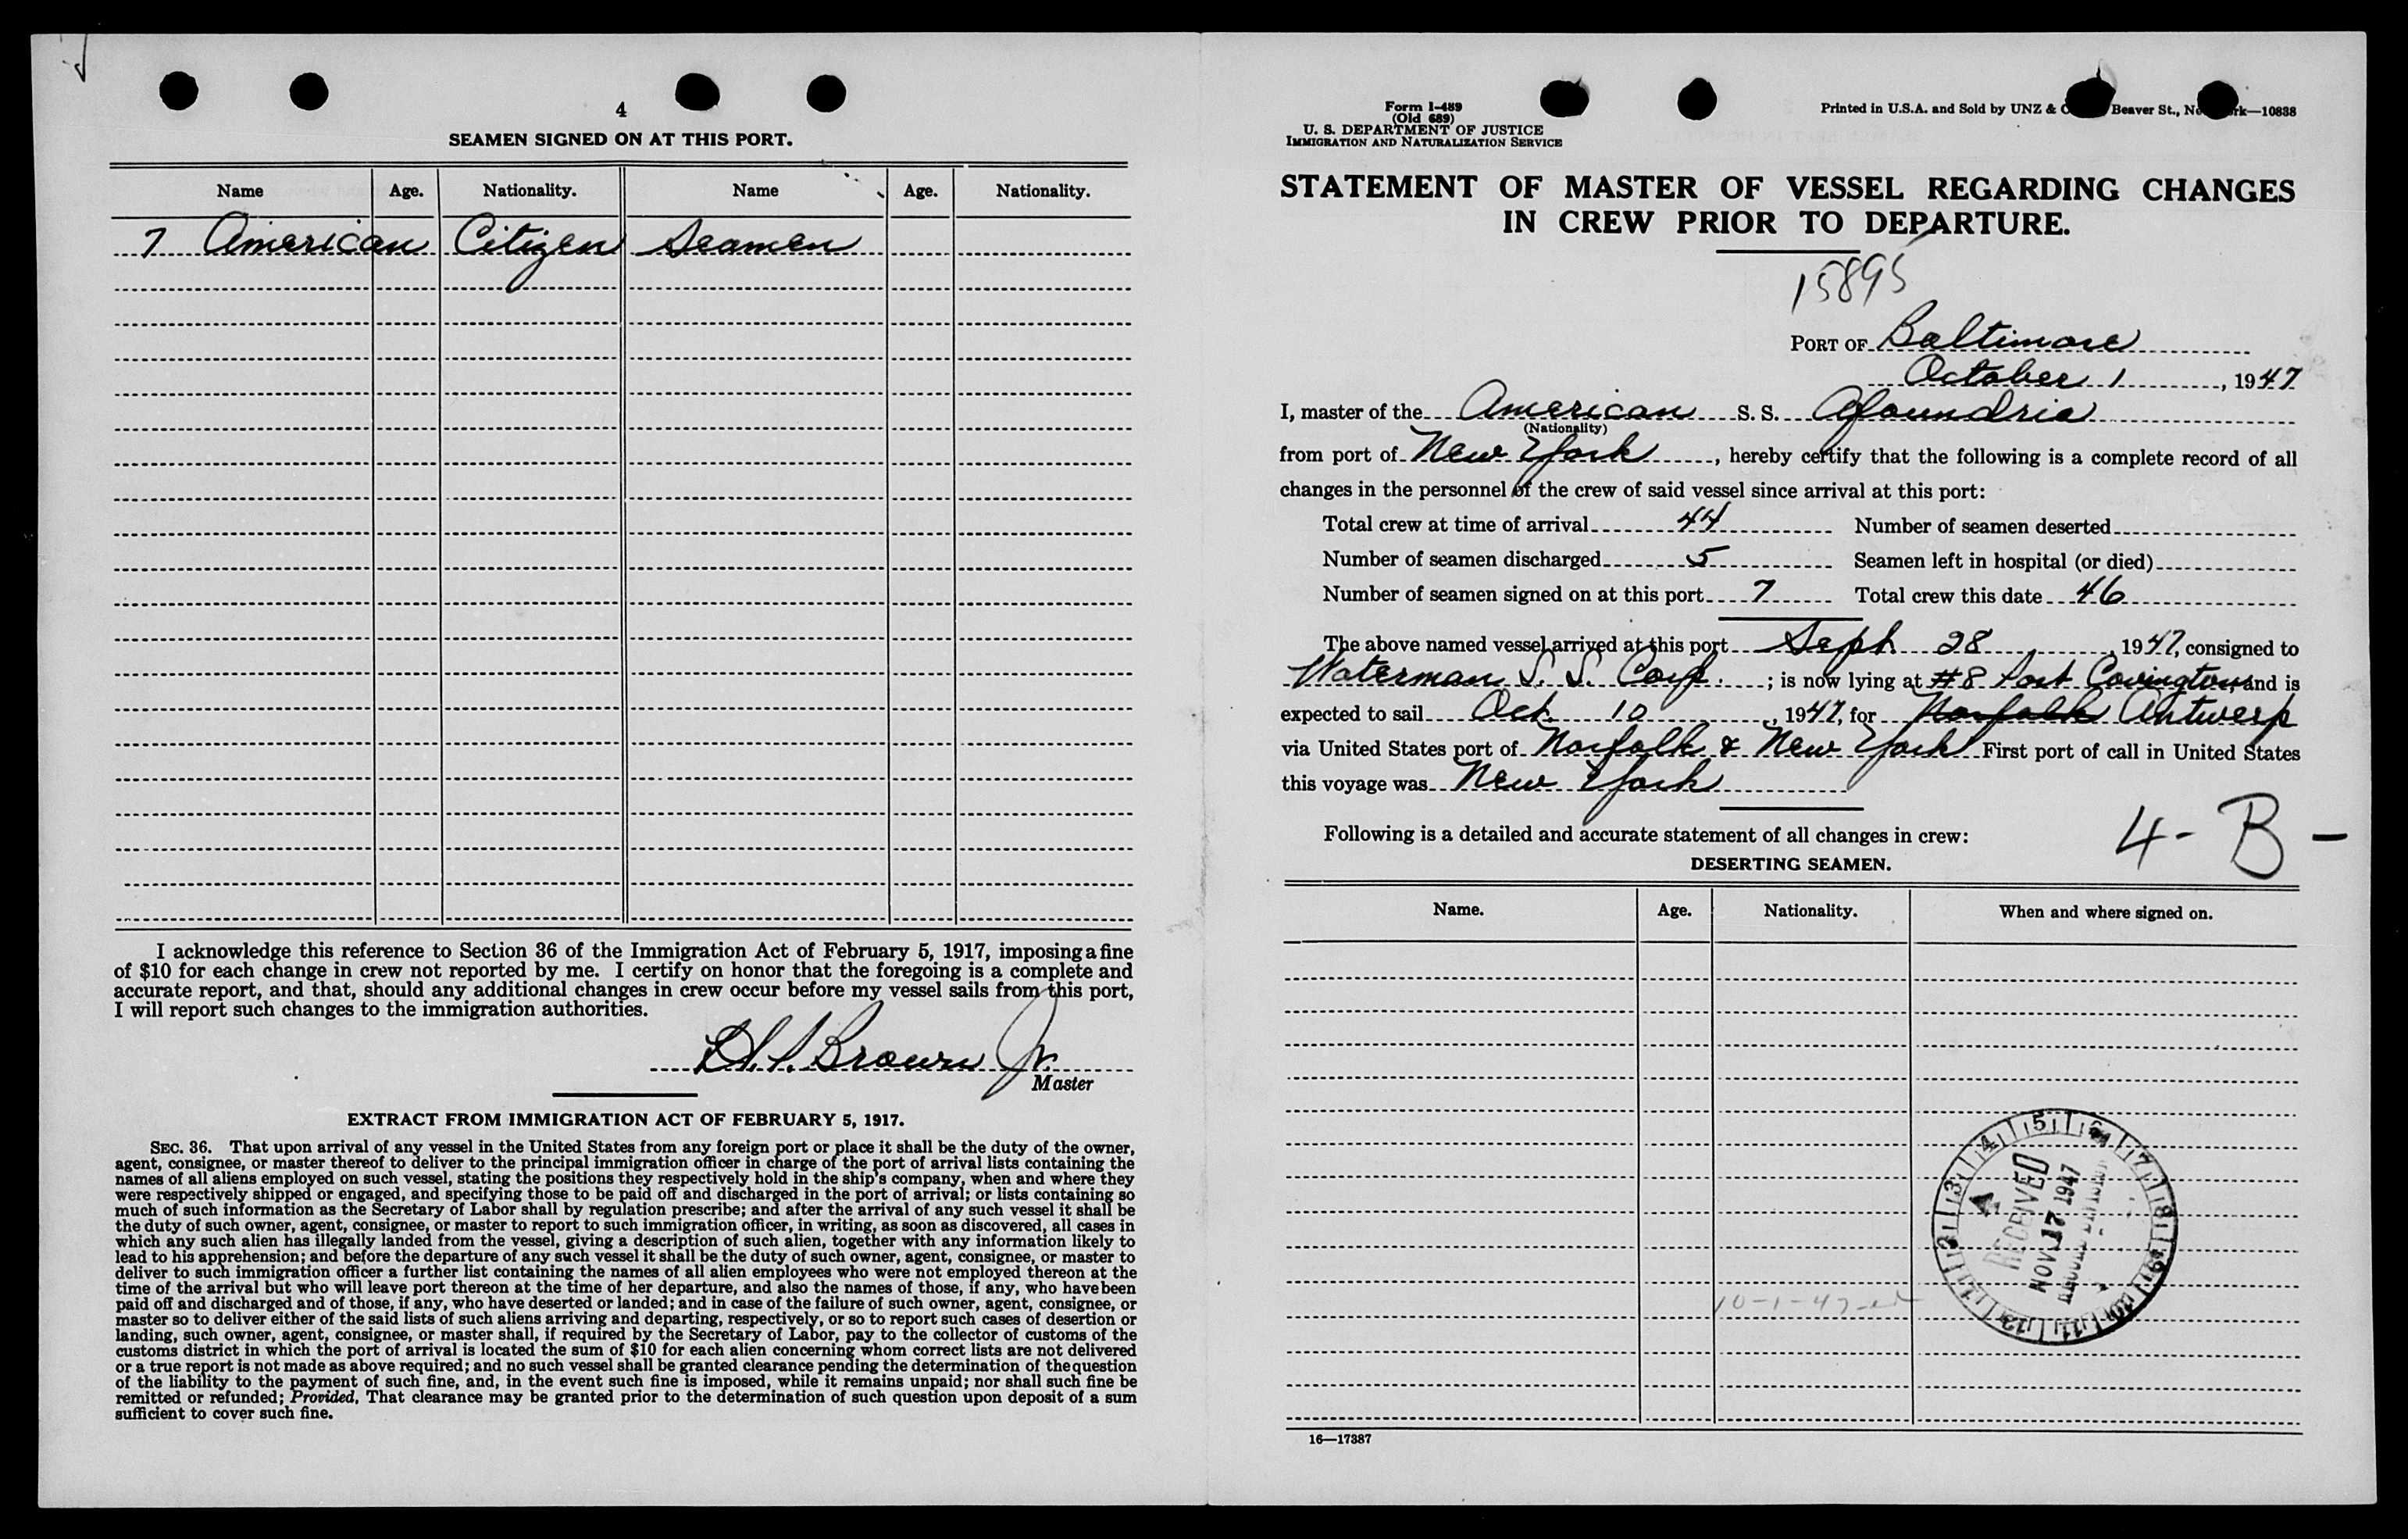 4
SEAMEN SIGNED ON AT THIS PORT.
Name Age. Nationality. Name Age. Nationality.
7 American Citizen Seamen
I acknowledge this reference to Section 36 of the Immigration Act of February 5, 1917, imposing a fine
of $10 for each change in crew not reported by me. I certify on honor that the foregoing is a complete and
accurate report, and that, should any additional changes in crew occur before my vessel sails from this port,
I will report such changes to the immigration authorities.
Brown Jr.
Master
EXTRACT FROM IMMIGRATION ACT OF FEBRUARY 5, 1917.
SEC. 36. That upon arrival of any vessel in the United States from any foreign port or place it shall be the duty of the owner,
agent, consignee, or master thereof to deliver to the principal immigration officer in charge of the port of arrival lists containing the
names of all aliens employed on such vessel, stating the positions they respectively hold in the ship's company, when and where they
were respectively shipped or engaged, and specifying those to be paid off and discharged in the port of arrival; or lists containing so
much of such information as the Secretary of Labor shall by regulation prescribe; and after the arrival of any such vessel it shall be
the duty of such owner, agent, consignee, or master to report to such immigration officer, in writing, as soon as discovered, all cases in
which any such alien has illegally landed from the vessel, giving a description of such alien, together with any information likely to
lead to his apprehension; and before the departure of any such vessel it shall be the duty of such owner, agent, consignee, or master to
deliver to such immigration officer a further list containing the names of all alien employees who were not employed thereon at the
time of the arrival but who will leave port thereon at the time of her departure, and also the names of those, if any, who have been
paid off and discharged and of those, if any, who have deserted or landed; and in case of the failure of such owner, agent, consignee, or
master so to deliver either of the said lists of such aliens arriving and departing, respectively, or so to report such cases of desertion or
landing, such owner, agent, consignee, or master shall, if required by the Secretary of Labor, pay to the collector of customs of the
customs district in which the port of arrival is located the sum of $10 for each alien concerning whom correct lists are not delivered
or a true report is not made as above required; and no such vessel shall be granted clearance pending the determination of the question
of the liability to the payment of such fine, and, in the event such fine is imposed, while it remains unpaid; nor shall such fine be
remitted or refunded; Provided, That clearance may be granted prior to the determination of such question upon deposit of a sum
sufficient to cover such fine.
Form I-489
(Old 689)
U. S. DEPARTMENT OF JUSTICE
IMMIGRATION AND NATURALIZATION SERVICE
Printed in U.S.A. and Sold by UNZ & Beaver St., rk—10838
STATEMENT OF MASTER OF VESSEL REGARDING CHANGES
IN CREW PRIOR TO DEPARTURE.
15895
PORT OF Baltimore
October 1, 1947
I, master of the American S. S. Afoundria
(Nationality)
from port of New York, hereby certify that the following is a complete record of all
changes in the personnel of the crew of said vessel since arrival at this port:
Total crew at time of arrival 44 Number of seamen deserted
Number of seamen discharged 5 Seamen left in hospital (or died)
Number of seamen signed on at this port 7 Total crew this date 46
The above named vessel arrived at this port Sept. 28, 1947, consigned to
Waterman S. S. Corp.; is now lying at #8 Port Covington, and is
expected to sail Oct. 10, 1947, for Norfolk Antwerp
via United States port of Norfolk & New York First port of call in United States
this voyage was New York
4-B-
Following is a detailed and accurate statement of all changes in crew:
DESERTING SEAMEN.
Name. Age. Nationality. When and where signed on.
1 2 3 4 5 6 7 8 9 10 11 12
RECEIVED
NOV 17 1947
10-1-47
16—17387